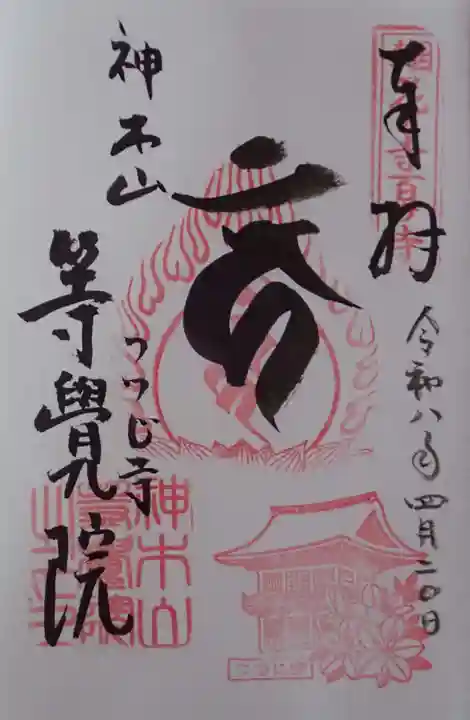 奉拝
令和八年四月二〇日
神木山
つつじ寺
等覺院
神木山